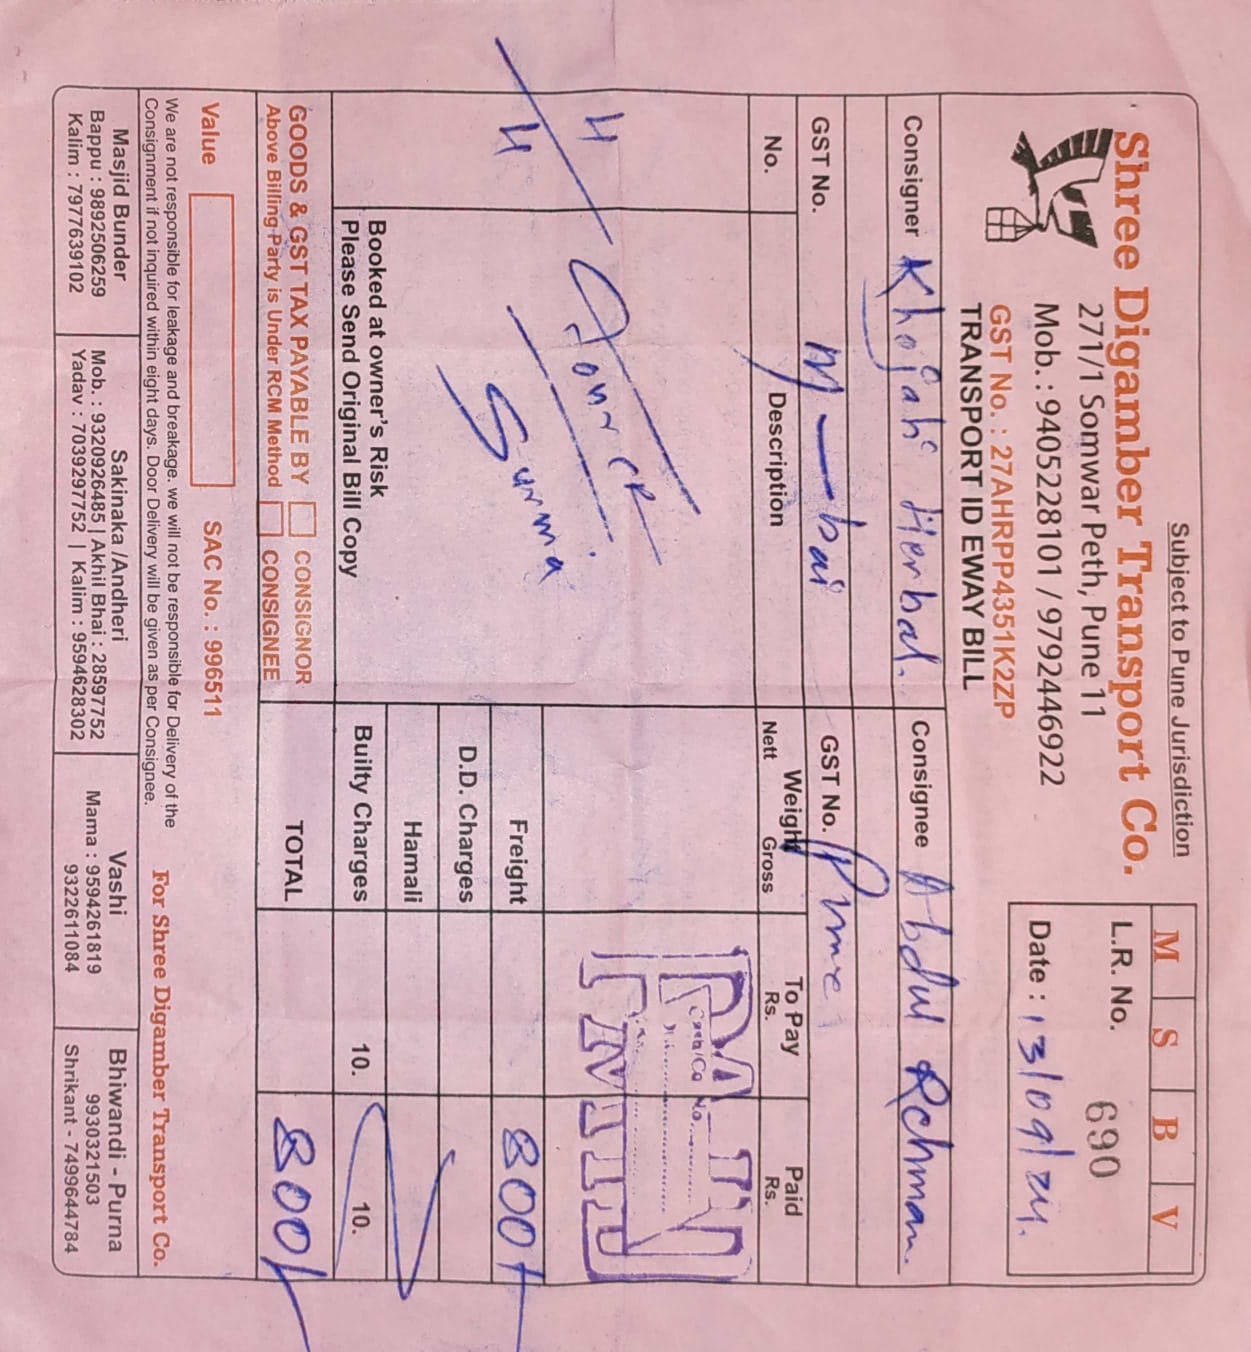 Subject to Pune Jurisdiction
Shree Digamber Transport Co.
271/1 Somwar Peth, Pune 11
Mob. : 9405228101 / 9792446922
GST No. : 27AHRPP4351K2ZP
TRANSPORT ID EWAY BILL
M S B V
L.R. No. 690
Date : 13/09/24.
Consigner Khojati Herbal.
Consignee Abdul Rehman.
GST No. M-bai
GST No. Pune
No. Description Weight To Pay Paid
Nett Gross Rs. Rs.
4
4
Surma
PAID
Cash/Co No.
Freight 800/
D.D. Charges
Hamali
Booked at owner's Risk
Please Send Original Bill Copy
Builty Charges 10. 10.
GOODS & GST TAX PAYABLE BY CONSIGNOR
Above Billing Party is Under RCM Method CONSIGNEE
TOTAL 800/
Value SAC No. : 996511
We are not responsible for leakage and breakage. we will not be responsible for Delivery of the
Consignment if not inquired within eight days. Door Delivery will be given as per Consignee.
For Shree Digamber Transport Co.
Masjid Bunder
Bappu : 9892506259
Kalim : 7977639102
Sakinaka /Andheri
Mob. : 9320926485 | Akhil Bhai : 28597752
Yadav : 7039297752 | Kalim : 9594628302
Vashi
Mama : 9594261819
9322611084
Bhiwandi - Purna
9930321503
Shrikant - 7499644784